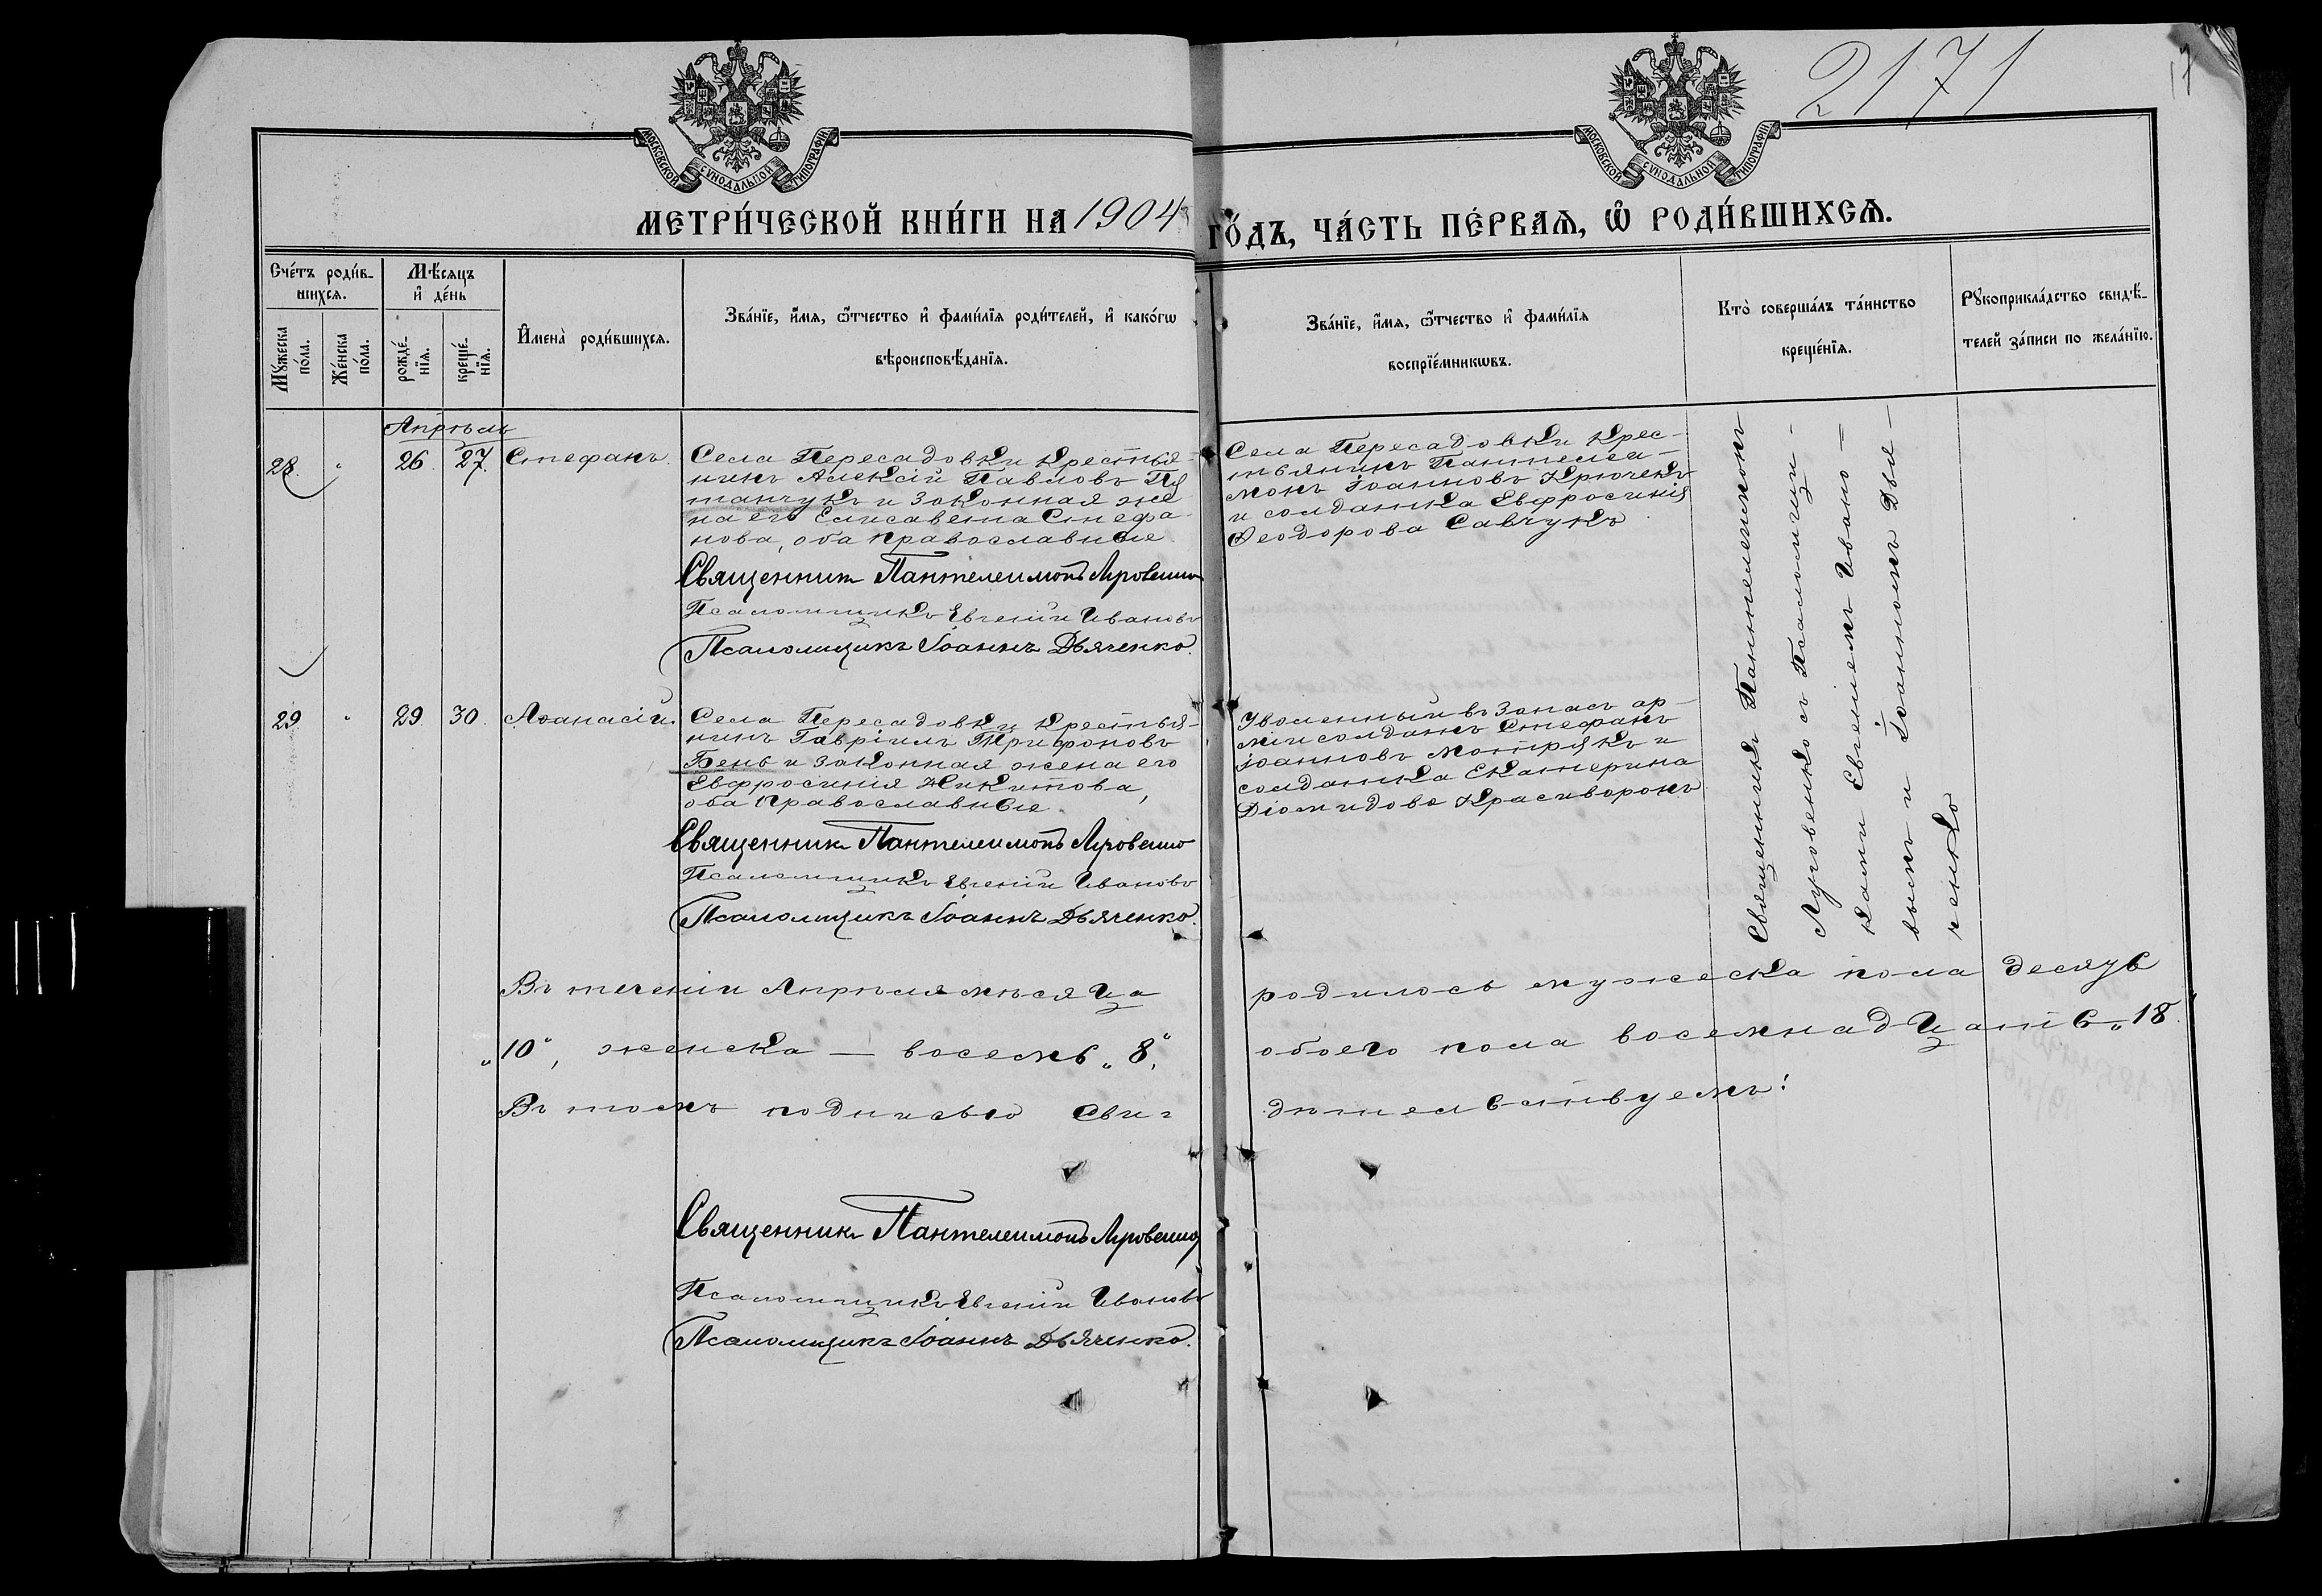 2171
17
МОСКОВСКОЙ СУНОДАЛЬНОЙ ТИПОГРАФІИ
МОСКОВСКОЙ СУНОДАЛЬНОЙ ТИПОГРАФІИ
МЕТРИ́ЧЕСКОЙ КНИ́ГИ НА 1904 ГО́ДЪ, ЧА́СТЬ ПЕ́РВАѦ, Ѡ РОДИ́ВШИХСѦ.
Сче́тъ роди́в-
шихсѧ.
Мꙋ́жеска
по́ла.
Же́нска
по́ла.
Мѣ́сѧцъ
и҆ де́нь
рожде́-
нїѧ.
креще́-
нїѧ.
И҆мена̀ роди́вшихсѧ.
Зва́нїе, и҆́мѧ, ѻ҆́тчество и҆ фами́лїѧ роди́телей, и҆ како́гѡ
вѣроисповѣ́данїѧ.
Зва́нїе, и҆́мѧ, ѻ҆́тчество и҆ фами́лїѧ
воспрїе́мникѡвъ.
Кто̀ соверша́лъ та́инство
креще́нїѧ.
Рꙋкоприкла́дство свидѣ́-
телей за́писи по жела́нїю.
Апрѣль
28. " 26. 27. Стефанъ.
Села Пересадовки крестья-
нинъ Алексій Павловъ Пу
танчукъ и законная же
на его Елисавета Стефа
нова, оба православные.
Священникъ Пантелеимонъ Луговенко
Псаломщикъ Евгеній Ивановъ
Псаломщикъ Іоаннъ Дьяченко.
Села Пересадовки крес-
тьянинъ Пантелеи-
монъ Іоанновъ Крючекъ
и солдатка Евфросинія
Ѳеодорова Савчукъ
Священникъ Пантелеимонъ
Луговенко съ Псаломщи-
ками Евгеніемъ Ивано-
вымъ и Іоанномъ Дья-
ченко
29 " 29. 30. Аѳанасій.
Села Пересадовки крестья-
нинъ Гавріилъ Трифоновъ
Бень и законная жена его
Евфросинія Никитова,
оба православные.
Священникъ Пантелеимонъ Луговенко
Псаломщикъ Евгеній Ивановъ
Псаломщикъ Іоаннъ Дьяченко.
Уволенный въ запасъ ар-
міи солдатъ Стефанъ
Іоанновъ Мотрукъ и
солдатка Екатерина
Діомидова Красиворонъ
Въ теченіи Апрѣля мѣсяца родилось мужеска пола десять
„10", женска — восемь „8", обоего пола восемнадцать „18"
Въ томъ подписью сви- дѣтельствуемъ:
Священникъ Пантелеимонъ Луговенко
Псаломщикъ Евгеній Ивановъ
Псаломщикъ Іоаннъ Дьяченко.